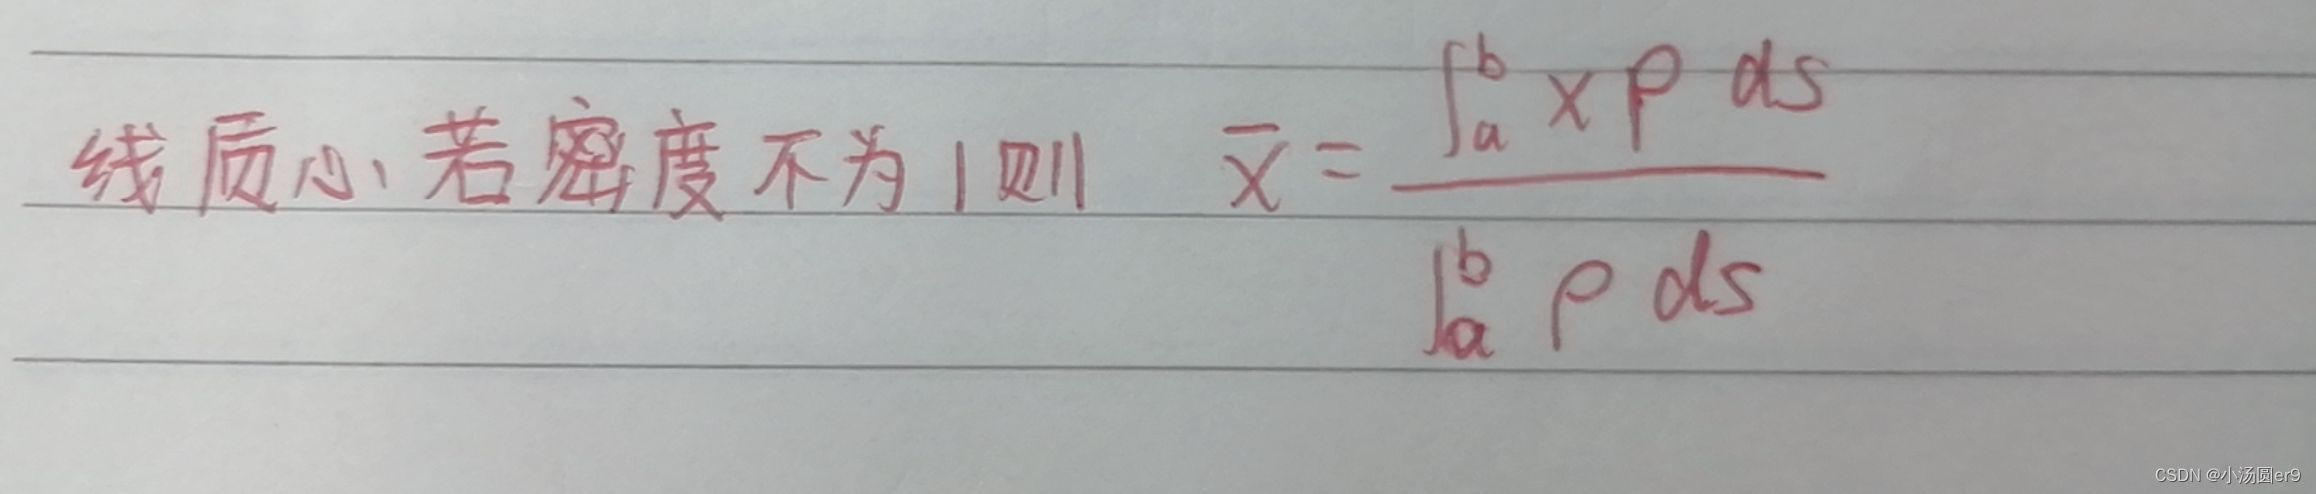 线质心若密度不为1则 x̄ = ∫ₐᵇ xρ ds / ∫ₐᵇ ρ ds
CSDN @小汤圆er9